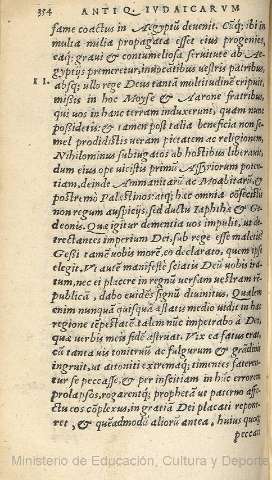 354 ANTIQ. IVDAICARVM
fame coactus in Aegyptũ devenit. Cũq; ibi in
multa milia propagata esset eius progenies,
eaq; gravi & contumeliosa servitute ab Ae-
gyptijs premeretur, invocatibus vestris patribus,
II. absq; ullo rege Deus tantã multitudinẽ eripuit,
missis in hoc Mose & Aarone fratribus,
qui vos in hanc terram induxerunt, quam nunc
possidetis: & tamen post talia beneficia non se-
mel prodidistis veram pietatem ac religionem,
Nihilominus subiugatos ab hostibus liberavit,
dum eius ope victis primũ Assyriorum poten-
tiam, deinde Ammanitarũ ac Moabitarũ, &
postremò Palestinos: atq; hæc omnia cõfecistis
non regum auspicijs, sed ductu Iaphthæ & Ge-
deonis. Quæ igitur dementia vos impulit, ut de-
trectantes imperium Dei, sub rege esse maletis?
Gessi tamẽ vobis morẽ, eo declarato, quem ipse
elegit, Vt autẽ manifestè sciatis Deũ vobis ira-
tum, nec ei placere in regnũ versam vestram rẽ
publicã, dabo evidẽs signũ divinitus. Qualem
enim nunquã quisquã æstatis medio vidit in hac
regione tẽpestatẽ talem nũc impetrabo à Deo,
quæ verbis meis fidẽ astruat. Vix ea fatus erat,
cũ tanta vis tonitruũ ac fulgurum & grãdinũ
ingruit, ut attoniti extremaq; timentes faterẽ-
tur se peccasse, & per inscitiam in hũc errorem
prolapsos, rogarentq; prophetã ut paterno affe-
ctu eos cõplexus, in gratiã Dei placati repone-
ret, & quẽadmodũ aliorũ antea, huius quoq;
peccati
Ministerio de Educación, Cultura y Deporte